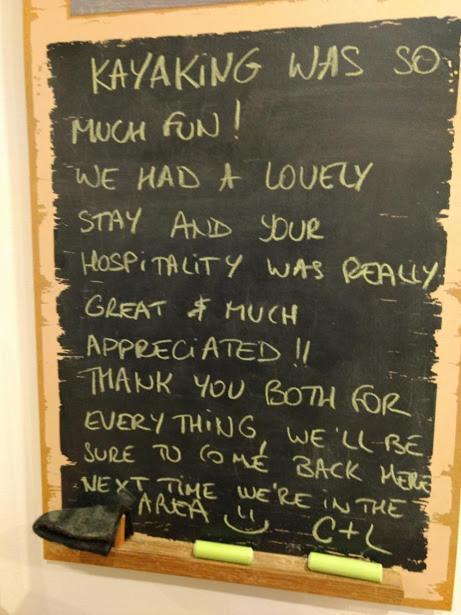 KAYAKING WAS SO
MUCH FUN!
WE HAD A LOVELY
STAY AND YOUR
HOSPITALITY WAS REALLY
GREAT & MUCH
APPRECIATED!!
THANK YOU BOTH FOR
EVERYTHING, WE'LL BE
SURE TO COME BACK HERE
NEXT TIME WE'RE IN THE
AREA
C+L